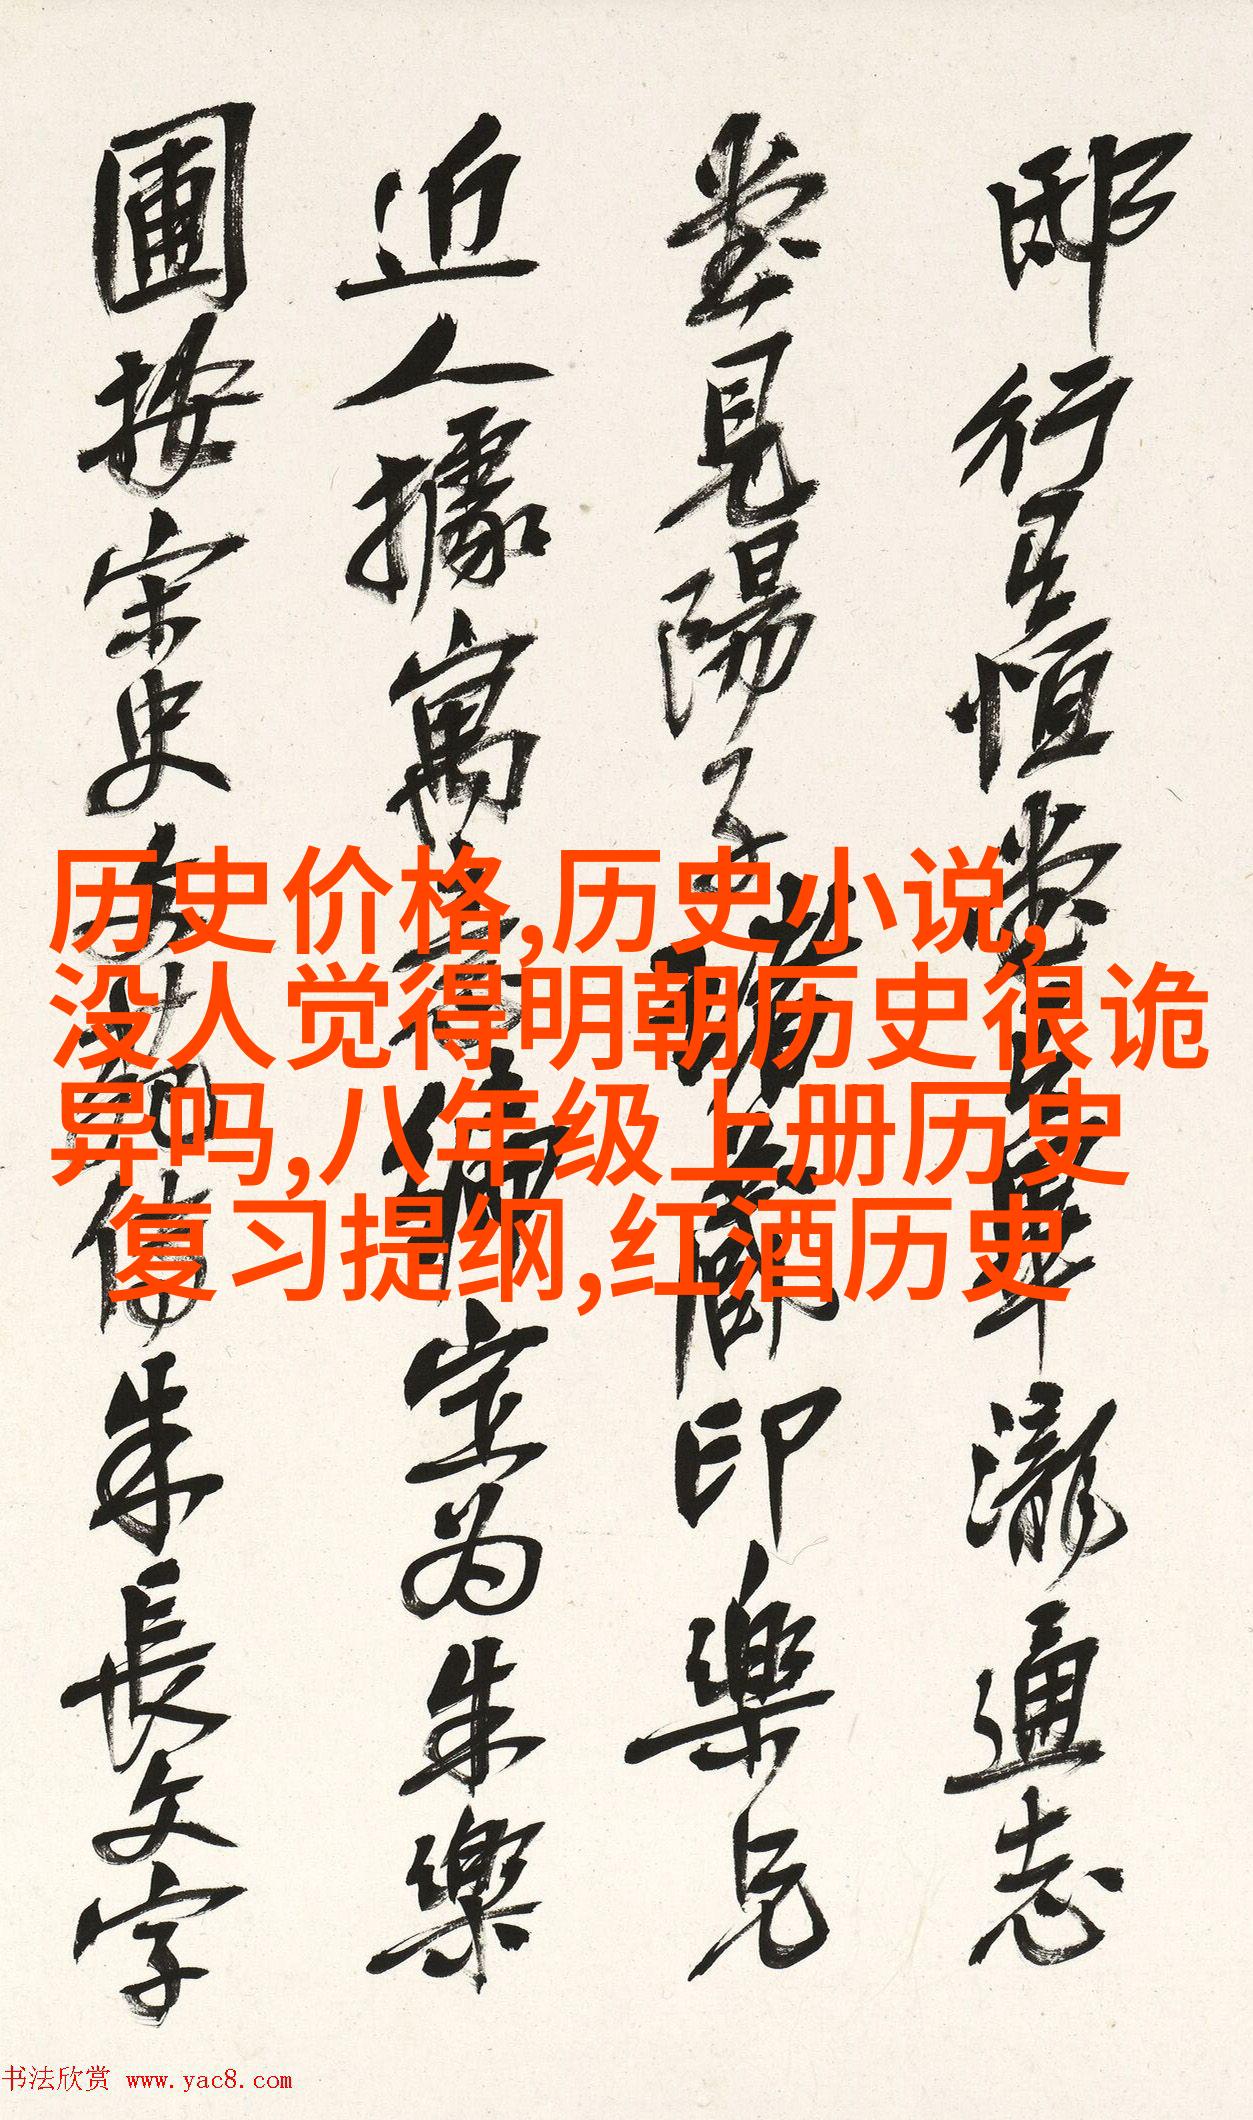 邸行星恒堂
瀧通志
堂見陽子
印樂兄
近人據寓
定為朱樂
圃按宋史
朱長文字
历史价格,历史小说,
没人觉得明朝历史很诡
异吗,八年级上册历史
复习提纲,红酒历史
书法欣赏 www.yac8.com